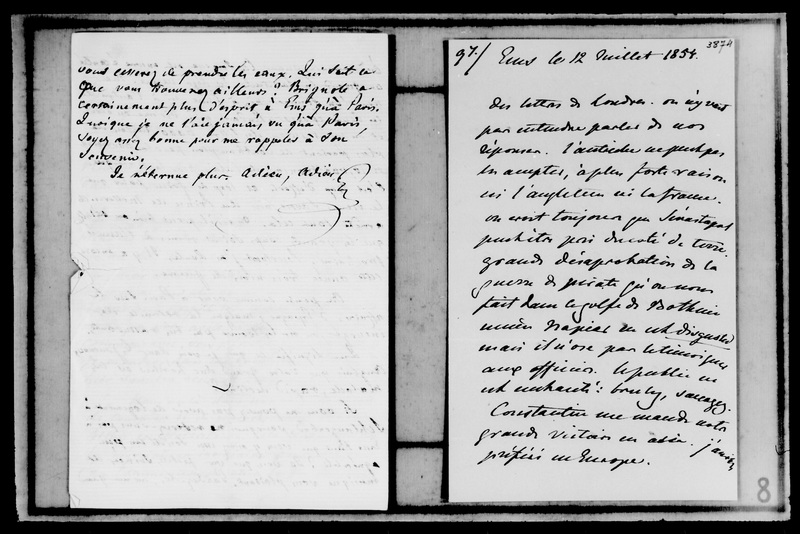 vous cesserez de prendre les eaux. Qui sait ce
que vous trouverez ailleurs ? Brignole a
certainement plus d'esprit à Ems qu'à Paris.
Quoique je ne l'aie jamais vu qu'à Paris,
soyez assez bonne pour me rappeler à son
souvenir.
Je n'éternue plus. Adieu, Adieu
3874
97./ Ems le 12 Juillet 1854.
des lettres de Londres. on n'y veut
pas entendre parler de nos
réponses. l'Autriche ne peut pas
les accepter, à plus forte raison
ni l'angleterre ni la france.
on croit toujours que Sévastopol
peut être pris du coté de terre.
grande désaprobation de la
guerre de pirate qu'on nous
fait dans le golfe de Bothnie
Napier en est disgusted
mais il n'ose pas le témoigner
aux officiers. le public en
est enchanté : brulez, saccagez.
Constantin me mande notre
grande victoire en asie. j'aurais
préféré en Europe.
8